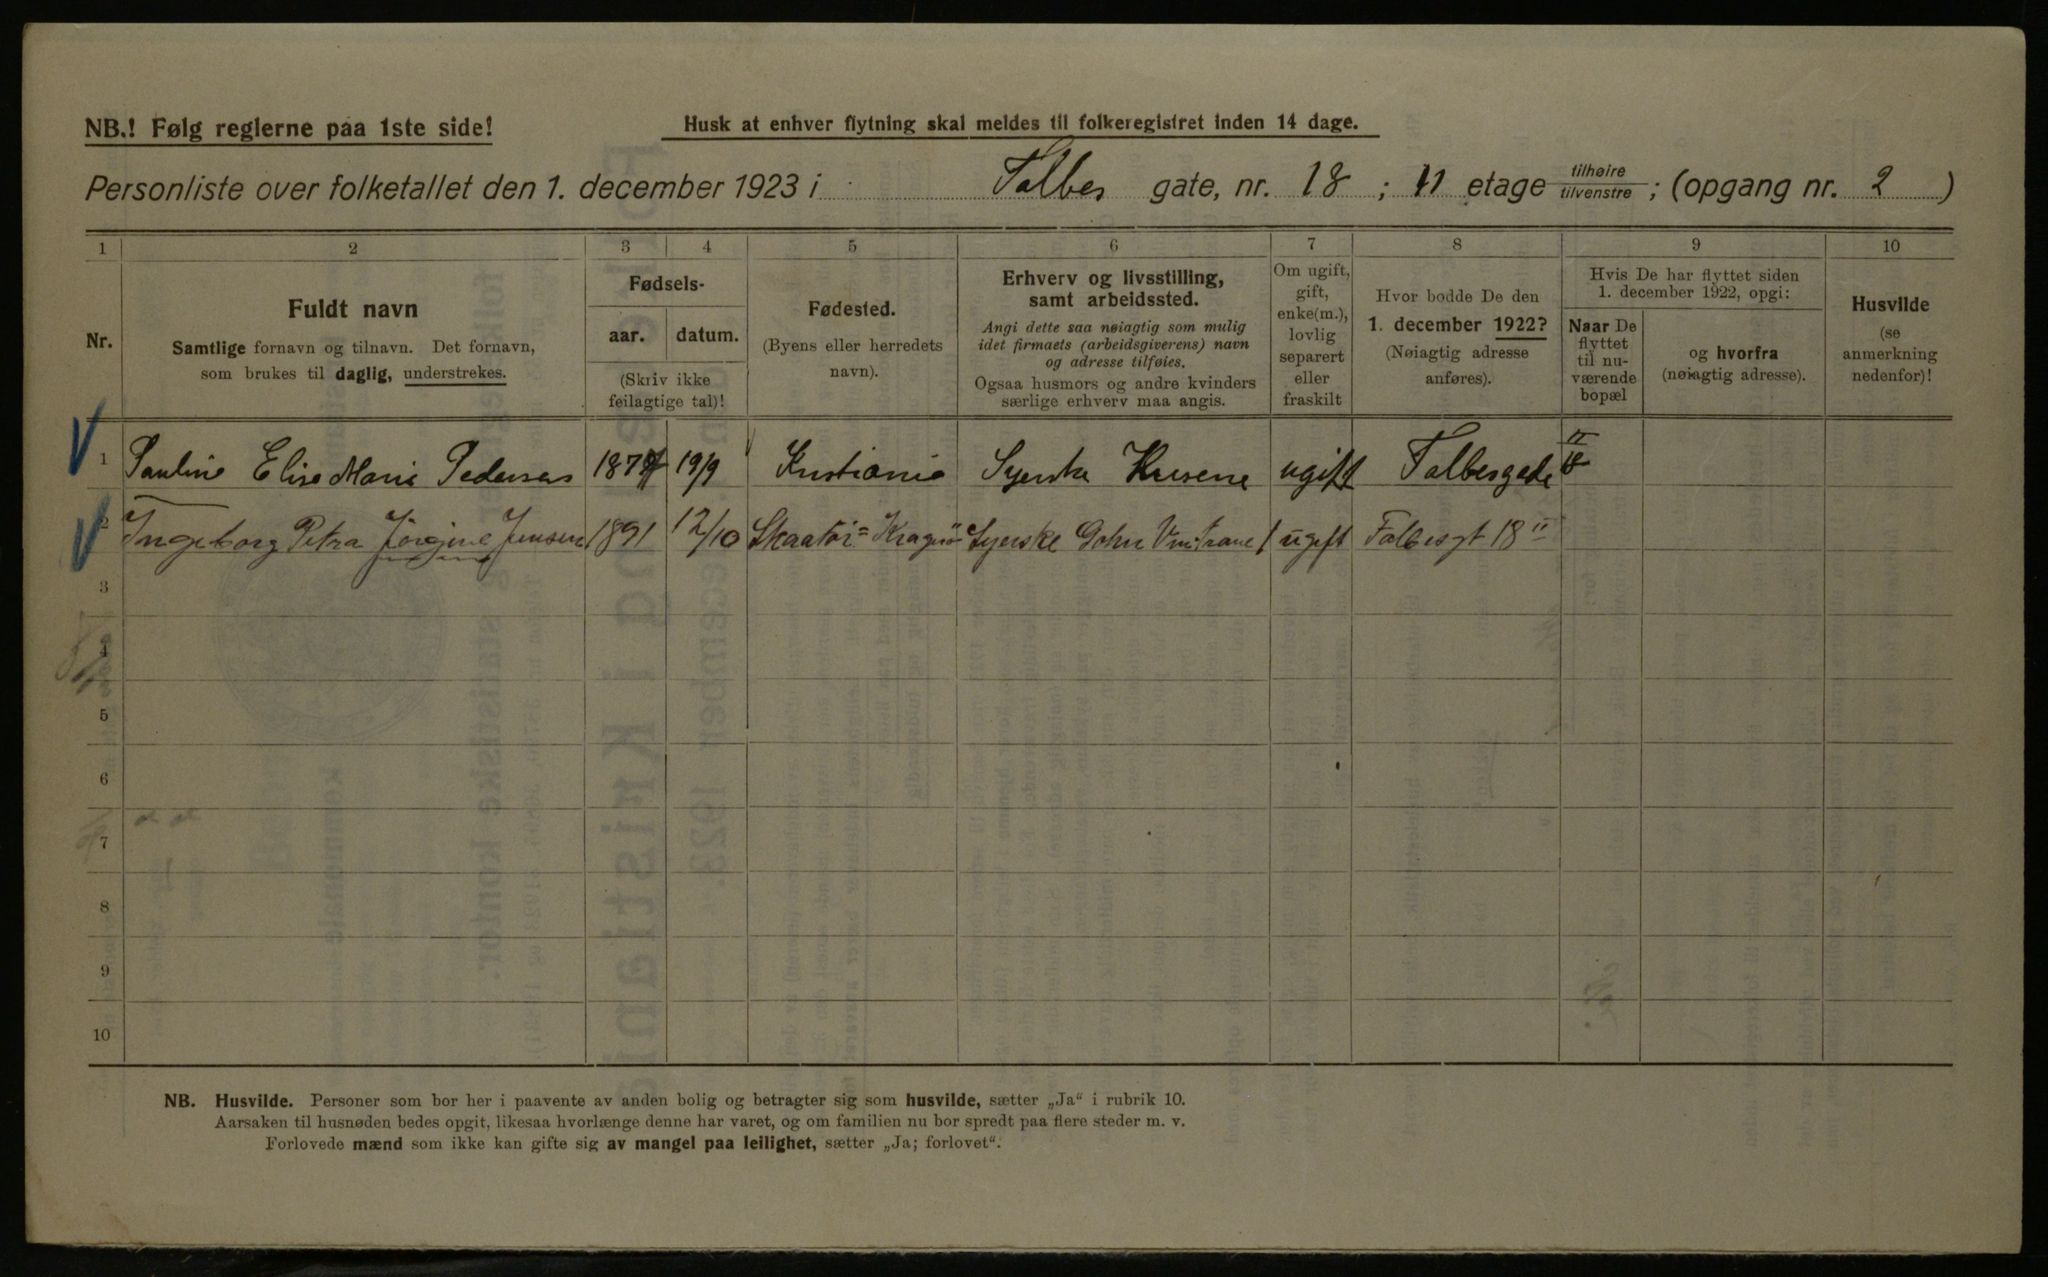 NB.! Følg reglerne paa 1ste side!
Husk at enhver flytning skal meldes til folkeregistret inden 14 dage.
Personliste over folketallet den 1. december 1923 i Falbes gate, nr. 18 ; 11 etage tilhøire tilvenstre ; (opgang nr. 2 )
1 2 3 4 5 6 7 8 9 10
Nr.
Fuldt navn
Samtlige fornavn og tilnavn. Det fornavn,
som brukes til daglig, understrekes.
Fødsels-
aar. datum.
(Skriv ikke
feilagtige tal)!
Fødested.
(Byens eller herredets
navn).
Erhverv og livsstilling,
samt arbeidssted.
Angi dette saa nøiagtig som mulig
idet firmaets (arbeidsgiverens) navn
og adresse tilføies.
Ogsaa husmors og andre kvinders
særlige erhverv maa angis.
Om ugift,
gift,
enke(m.),
lovlig
separert
eller
fraskilt
Hvor bodde De den
1. december 1922?
(Nøiagtig adresse
anføres).
Hvis De har flyttet siden
1. december 1922, opgi:
Naar De
flyttet
til nu-
værende
bopæl
og hvorfra
(nøiagtig adresse).
Husvilde
(se
anmerkning
nedenfor)!
1 Pauline Elise Marie Pedersen 19/9 Kristiania ugift Falbesgade
2 Ingeborg Petra Jörgine Jensen 1891 12/10 Skaatöi = Kragerö Syerske ugift Falbesgt 18 II
3
4
5
6
7
8
9
10
NB. Husvilde. Personer som bor her i paavente av anden bolig og betragter sig som husvilde, sætter „Ja“ i rubrik 10.
Aarsaken til husnøden bedes opgit, likesaa hvorlænge denne har varet, og om familien nu bor spredt paa flere steder m. v.
Forlovede mænd som ikke kan gifte sig av mangel paa leilighet, sætter „Ja; forlovet“.